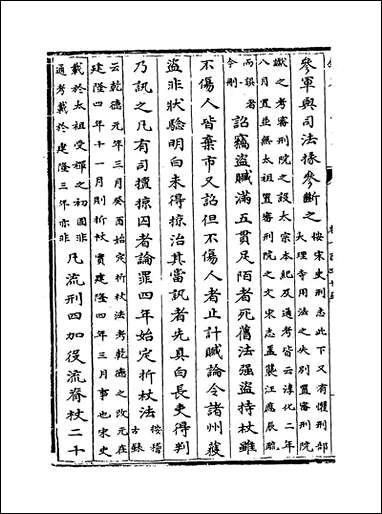 參軍與司法掾參斷之按宋史刑志此下又有懼刑部
大理寺用法之失別置審刑院
讞之考審刑院之設太宗本紀及通考皆云淳化二年
八月置並無太祖置審刑院之文宋志蓋襲江應辰疏
而誤者
今刪
詔竊盜贓滿五貫足陌者死舊法强盜持杖雖
不傷人皆棄市又詔但不傷人者止計贓論令諸州獲
盜非狀驗明白未得掠治其當訊者先具白長吏得判
乃訊之凡有司擅掠囚者論罪四年始定折杖法按稽
古錄
云乾德元年三月癸酉始定折杖法考乾德之改元在
建隆四年十一月則折杖實建隆四年三月事也宋史
載於太祖受禪之初固非
通考載於建隆三年亦非
凡流刑四加役流脊杖二十